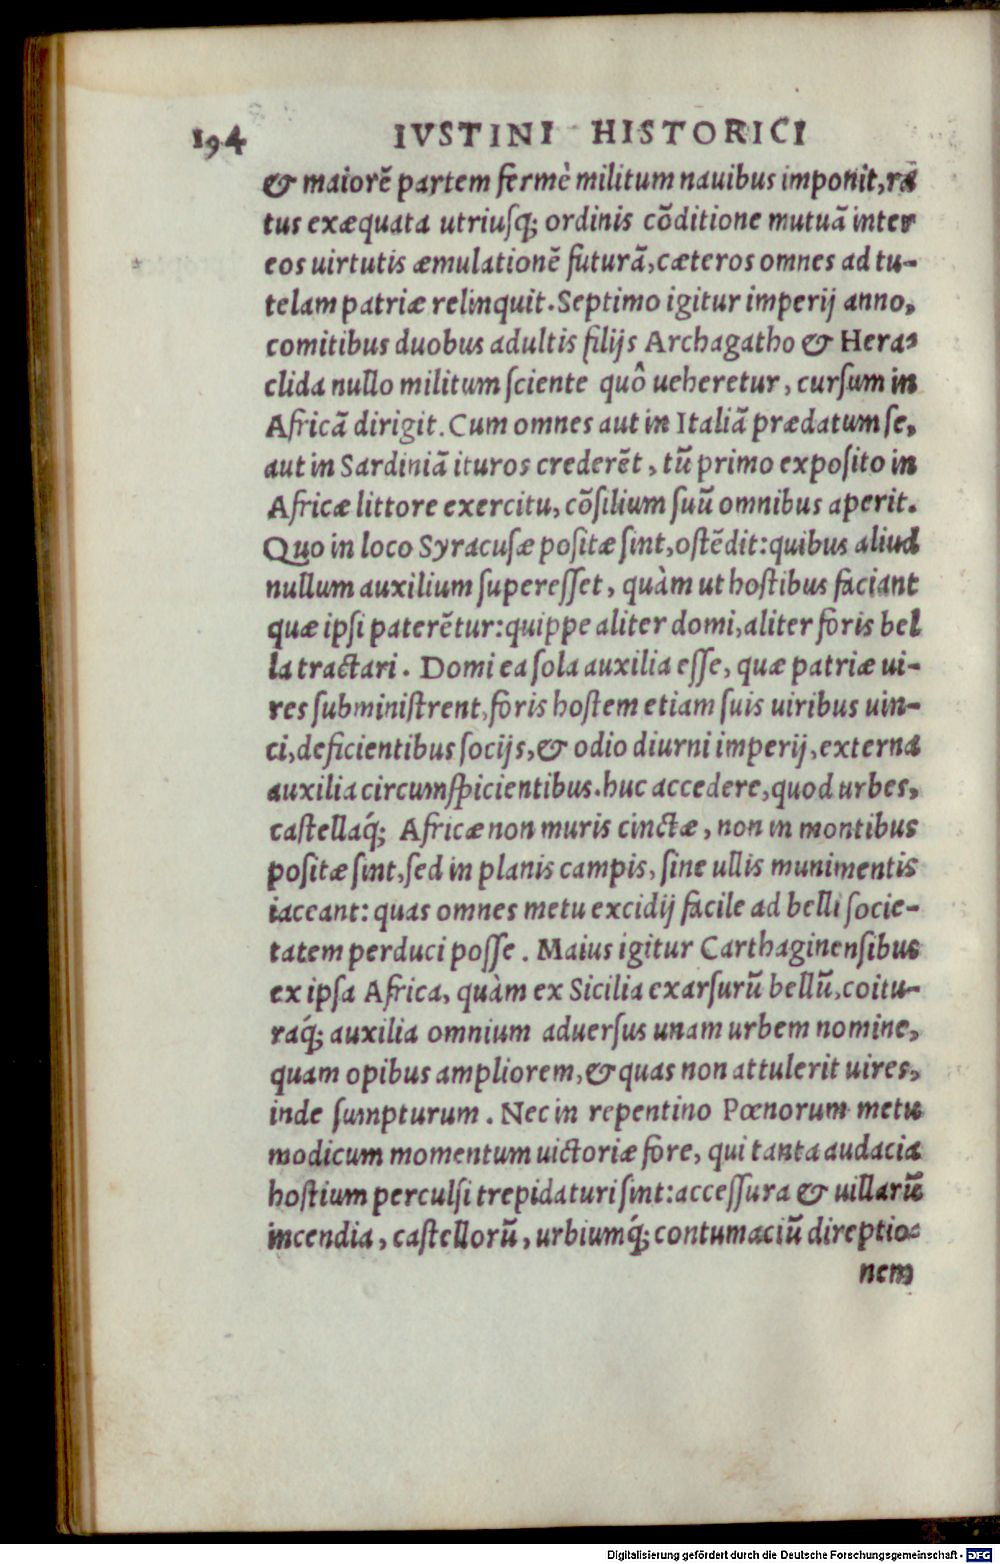 194 IVSTINI HISTORICI
& maiorē partem fermè militum nauibus imponit, ra
tus exæquata utriusq; ordinis cōditione mutuā inter
eos uirtutis æmulationē futurā, cæteros omnes ad tu-
telam patriæ relinquit. Septimo igitur imperij anno,
comitibus duobus adultis filijs Archagatho & Hera-
clida nullo militum ſciente quô ueheretur, curſum in
Africā dirigit. Cum omnes aut in Italiā prædatum ſe,
aut in Sardiniā ituros crederēt, tū primo expoſito in
Africæ littore exercitu, cōſilium ſuū omnibus aperit.
Quo in loco Syracuſæ poſitæ ſint, oſtēdit: quibus aliud
nullum auxilium ſupereſſet, quàm ut hoſtibus faciant
quæ ipſi paterētur: quippe aliter domi, aliter foris bel
la tractari. Domi ea ſola auxilia eſſe, quæ patriæ ui-
res ſubminiſtrent, foris hoſtem etiam ſuis uiribus uin-
ci, deficientibus ſocijs, & odio diurni imperij, externa
auxilia circumſpicientibus. huc accedere, quod urbes,
caſtellaq́; Africæ non muris cinctæ, non in montibus
poſitæ ſint, ſed in planis campis, ſine ullis munimentis
iaceant: quas omnes metu excidij facile ad belli ſocie-
tatem perduci poſſe. Maius igitur Carthaginenſibus
ex ipſa Africa, quàm ex Sicilia exarſurū bellū, coitu-
raq́; auxilia omnium aduerſus unam urbem nomine,
quam opibus ampliorem, & quas non attulerit uires,
inde ſumpturum. Nec in repentino Pœnorum metu
modicum momentum uictoriæ fore, qui tanta audacia
hoſtium perculſi trepidaturi ſint: acceſſura & uillarū
incendia, caſtellorū, urbiumq́; contumaciū direptio-
nem
Digitalisierung gefördert durch die Deutsche Forschungsgemeinschaft - DFG